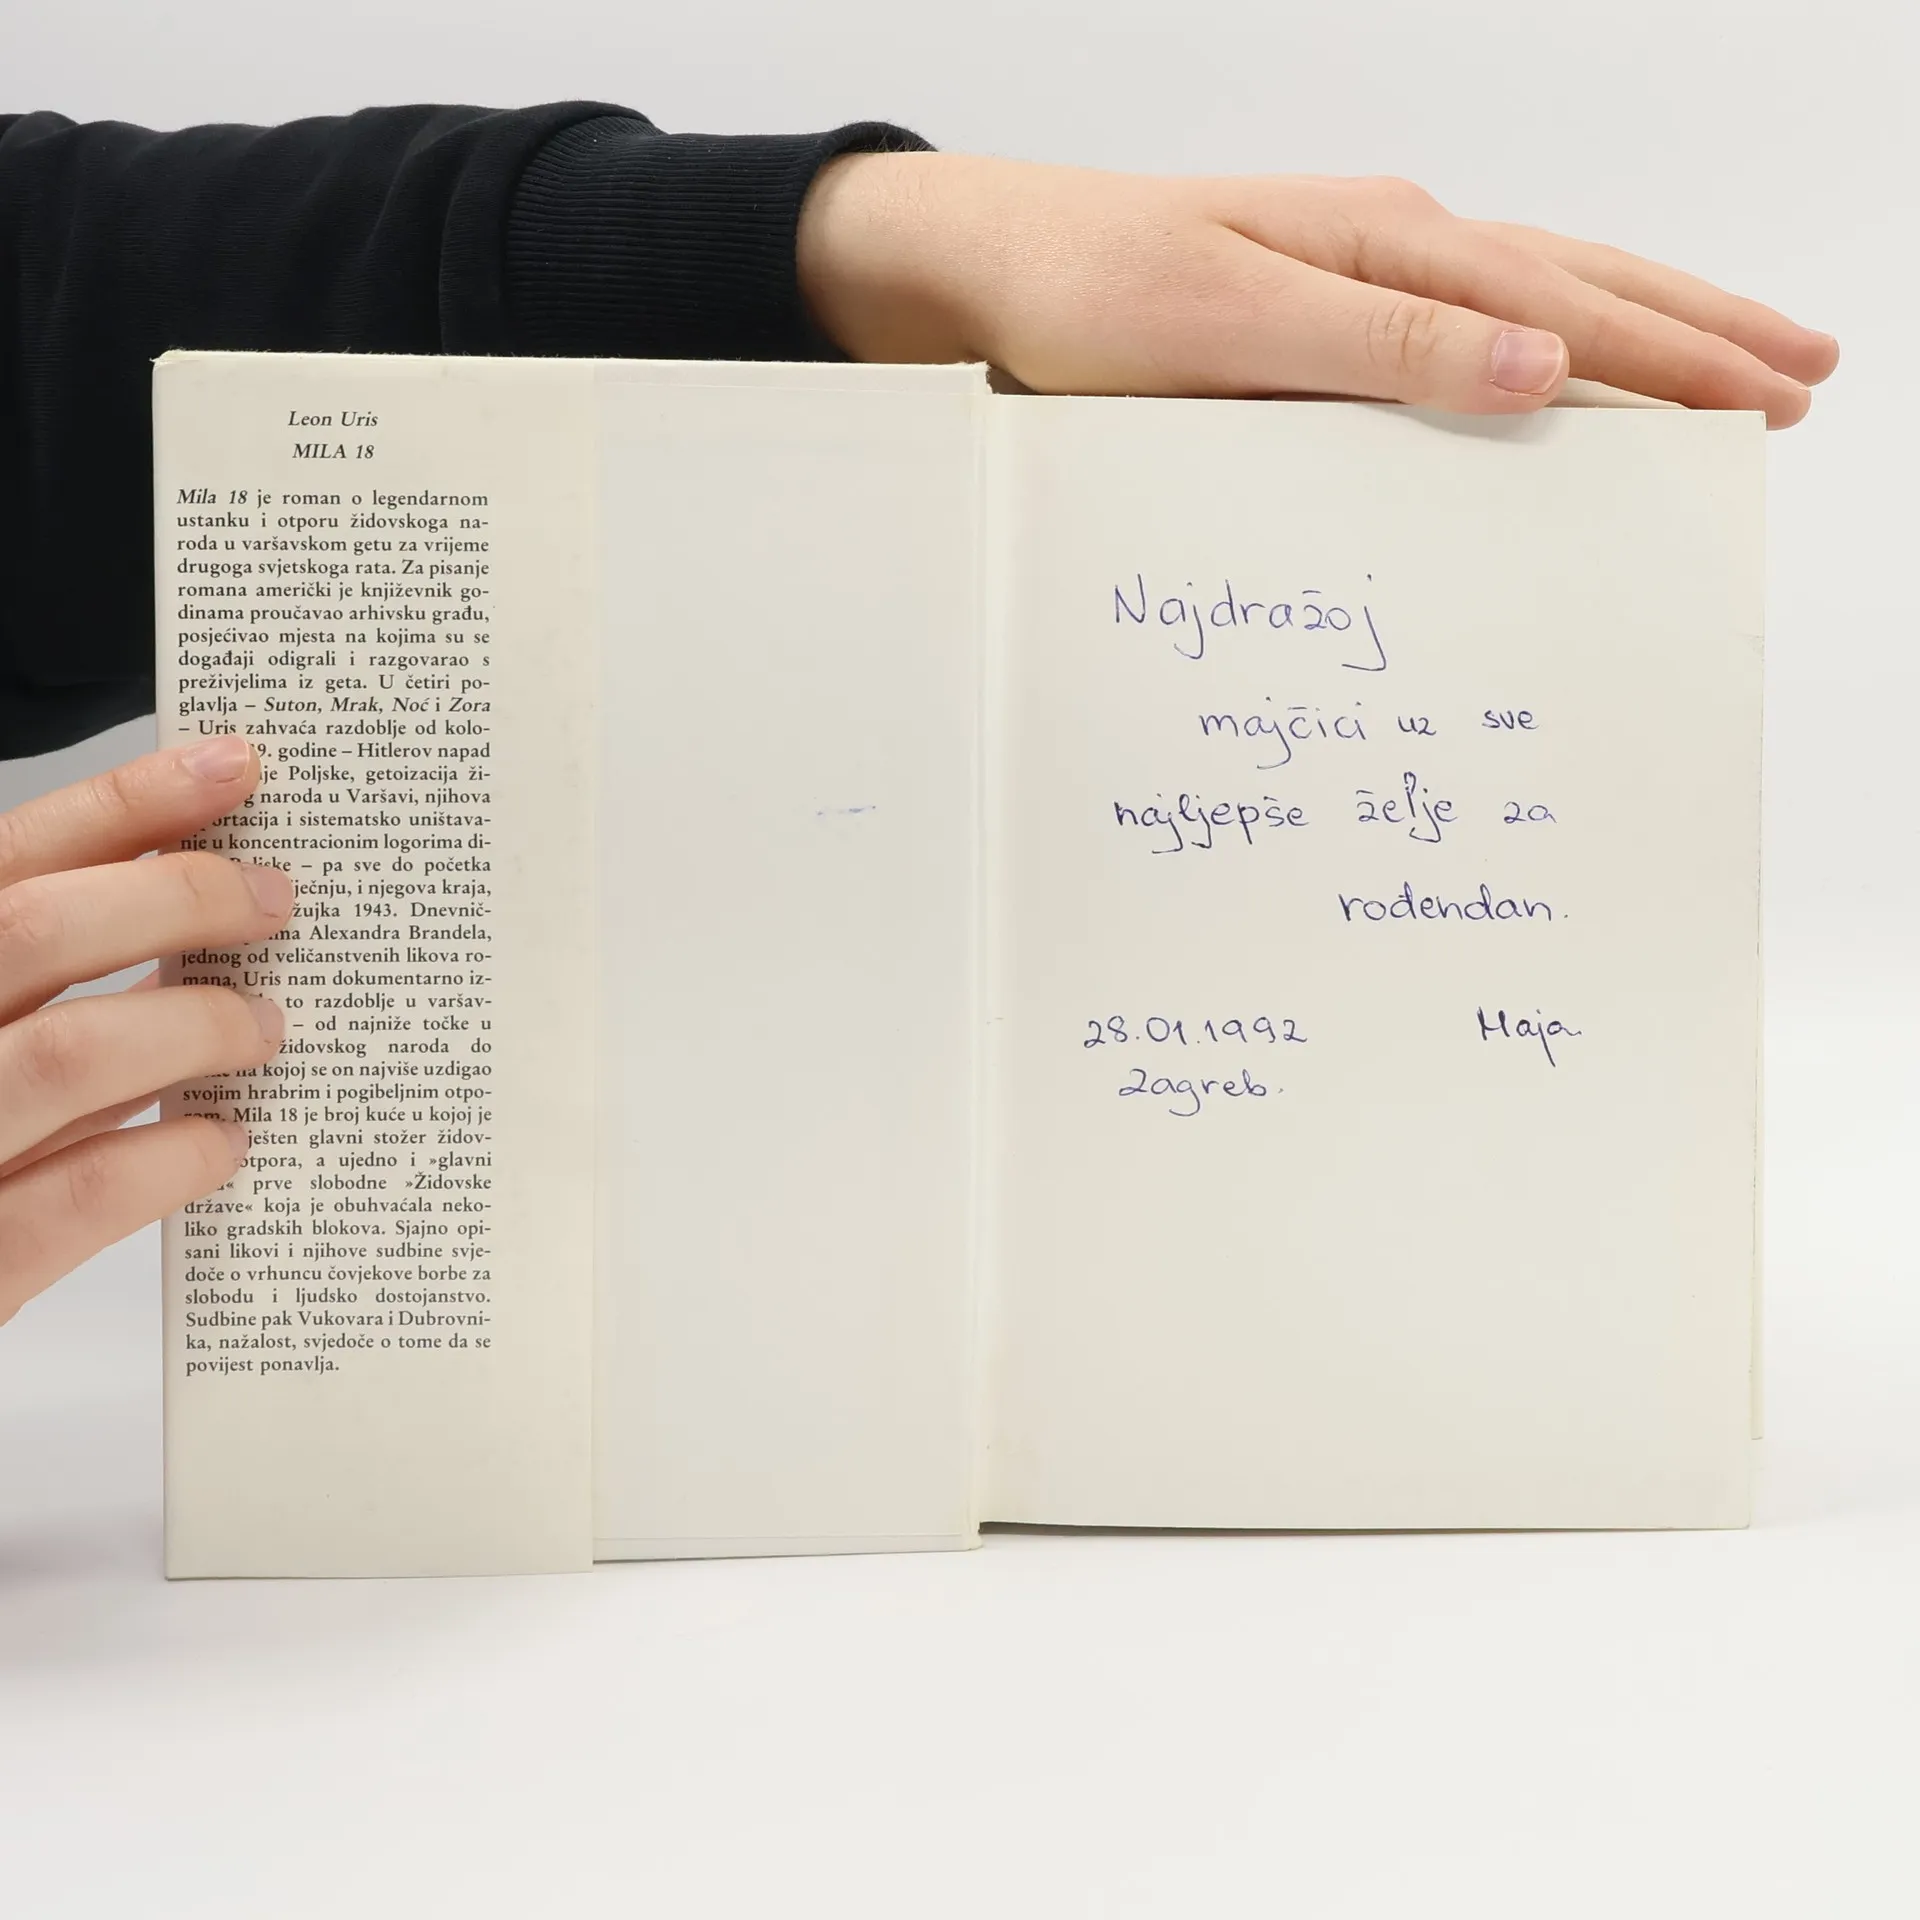 Leon Uris
MILA 18
Mila 18 je roman o legendarnom
ustanku i otporu židovskoga na-
roda u varšavskom getu za vrijeme
drugoga svjetskoga rata. Za pisanje
romana američki je književnik go-
dinama proučavao arhivsku građu,
posjećivao mjesta na kojima su se
događaji odigrali i razgovarao s
preživjelima iz geta. U četiri po-
glavlja – Suton, Mrak, Noć i Zora
– Uris zahvaća razdoblje od kolo-
9. godine – Hitlerov napad
je Poljske, getoizacija ži-
g naroda u Varšavi, njihova
ortacija i sistematsko uništava-
nje u koncentracionim logorima di-
Poljske – pa sve do početka
ječnju, i njegova kraja,
žujka 1943. Dnevnič-
Alexandra Brandela,
jednog od veličanstvenih likova ro-
mana, Uris nam dokumentarno iz-
to razdoblje u varšav-
– od najniže točke u
židovskog naroda do
na kojoj se on najviše uzdigao
svojim hrabrim i pogibeljnim otpo-
rom. Mila 18 je broj kuće u kojoj je
ješten glavni stožer židov-
otpora, a ujedno i »glavni
« prve slobodne »Židovske
države« koja je obuhvaćala neko-
liko gradskih blokova. Sjajno opi-
sani likovi i njihove sudbine svje-
doče o vrhuncu čovjekove borbe za
slobodu i ljudsko dostojanstvo.
Sudbine pak Vukovara i Dubrovni-
ka, nažalost, svjedoče o tome da se
povijest ponavlja.
Najdražoj
majčici uz sve
najljepše želje za
rođendan.
28.01.1992 Maja.
Zagreb.